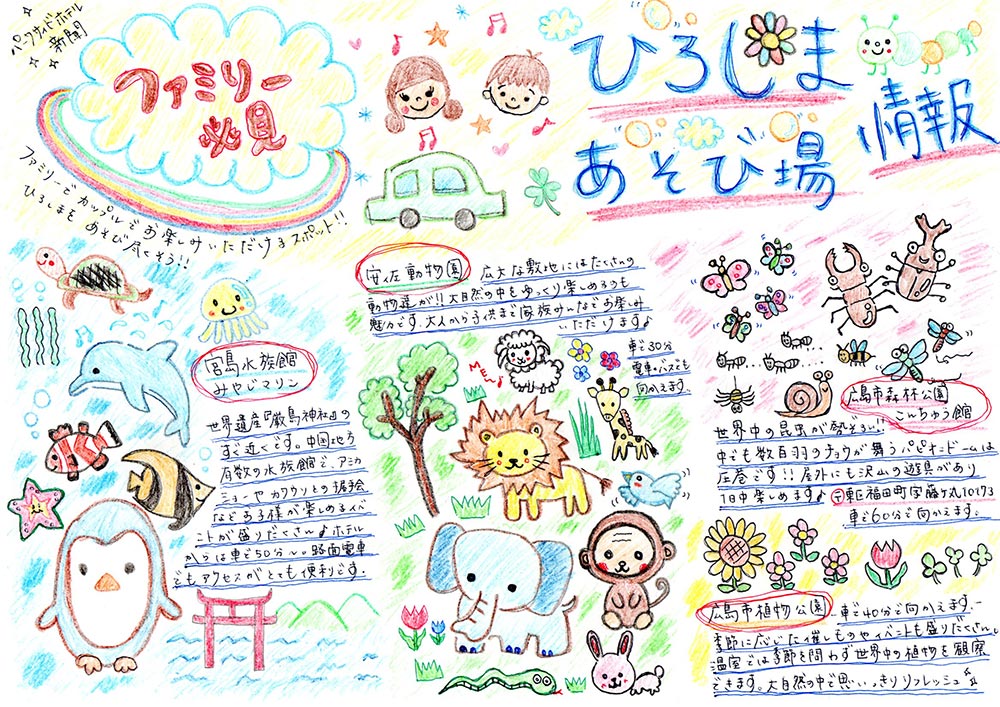 パークサイドホテル
新聞
ファミリー
必見
ファミリーでカップルでお楽しみいただけるスポット!!
ひろしまをあそび尽くそう!!
ひろしま
あそび場
情報
宮島水族館
みやじマリン
世界遺産『厳島神社』の
すぐ近くです。中国地方
有数の水族館で、アシカ
ショーやカワウソとの握手会
などお子様が楽しめるイベ
ントが盛りだくさん♪ホテル
からは車で50分〜。路面電車
でもアクセスがとても便利です。
安佐動物園 広大な敷地にはたくさんの
動物達が!!大自然の中をゆっくり楽しめるのも
魅力です。大人から子供まで家族みんなでお楽しみ
いただけます♪
車で30分
電車・バスでも
向かえます。
メェ〜♪
広島市森林公園
こんちゅう館
世界中の昆虫が勢ぞろい!!
中でも数百羽のチョウが舞うパピヨンドームは
圧巻です!!屋外にも沢山の遊具があり
1日中楽しめます♪ 〒東区福田町字藤ヶ丸10173
車で60分で向かえます。
広島市植物公園 -車で40分で向かえます.-
季節に応じた催しものやイベントも盛りだくさん。
温室では季節を問わず世界中の植物を観察
できます。大自然の中で思いっきりリフレッシュ